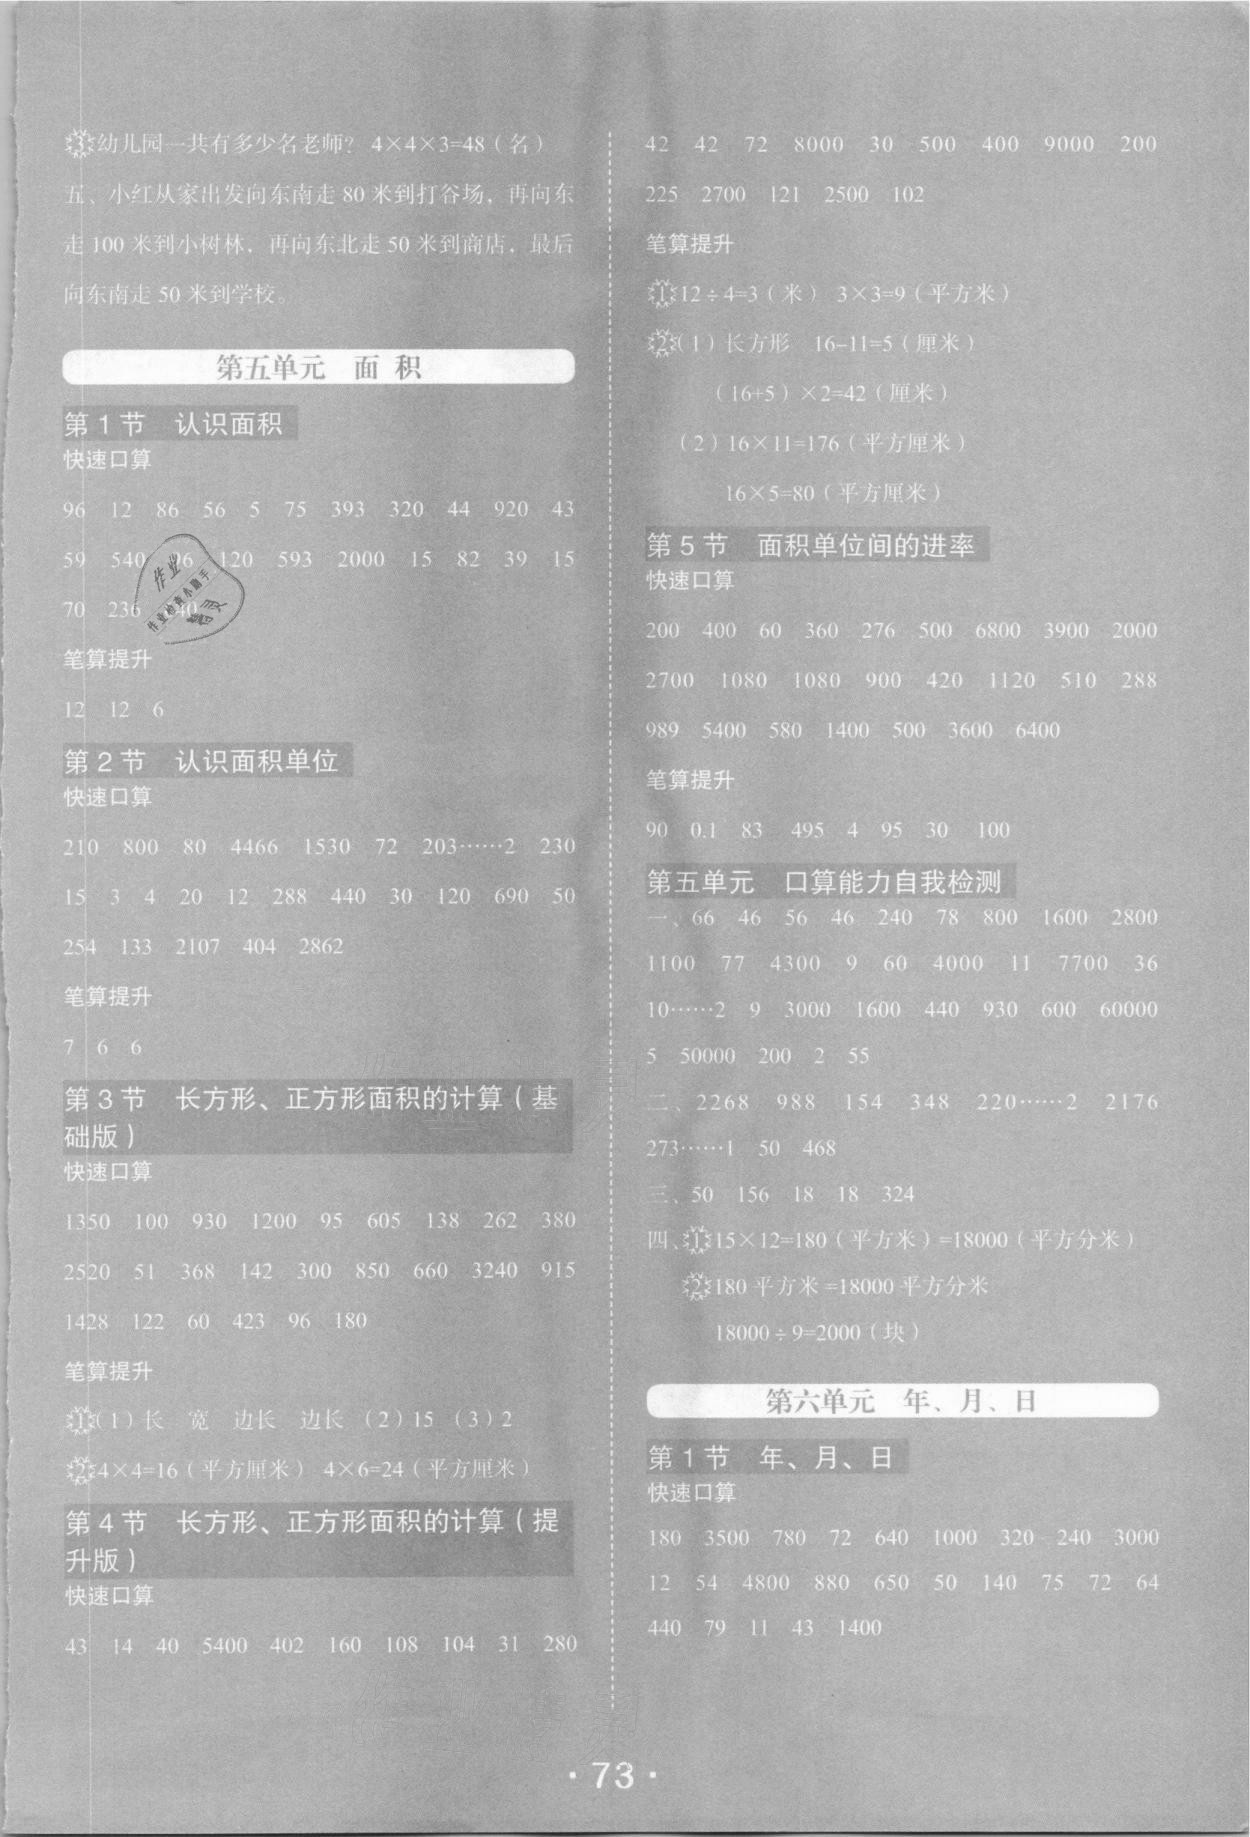 ③幼儿园一共有多少名老师？ 4×4×3=48（名）
五、小红从家出发向东南走 80 米到打谷场，再向东
走 100 米到小树林，再向东北走 50 米到商店，最后
向东南走 50 米到学校。
第五单元 面 积
第 1 节 认识面积
快速口算
96 12 86 56 5 75 393 320 44 920 43
59 540 96 120 593 2000 15 82 39 15
70 236
笔算提升
12 12 6
第 2 节 认识面积单位
快速口算
210 800 80 4466 1530 72 203……2 230
15 3 4 20 12 288 440 30 120 690 50
254 133 2107 404 2862
笔算提升
7 6 6
第 3 节 长方形、正方形面积的计算（基
础版）
快速口算
1350 100 930 1200 95 605 138 262 380
2520 51 368 142 300 850 660 3240 915
1428 122 60 423 96 180
笔算提升
①（1）长 宽 边长 边长 （2）15 （3）2
②4×4=16（平方厘米） 4×6=24（平方厘米）
第 4 节 长方形、正方形面积的计算（提
升版）
快速口算
43 14 40 5400 402 160 108 104 31 280
42 42 72 8000 30 500 400 9000 200
225 2700 121 2500 102
笔算提升
①12÷4=3（米） 3×3=9（平方米）
②（1）长方形 16-11=5（厘米）
（16+5）×2=42（厘米）
（2）16×11=176（平方厘米）
16×5=80（平方厘米）
第 5 节 面积单位间的进率
快速口算
200 400 60 360 276 500 6800 3900 2000
2700 1080 1080 900 420 1120 510 288
989 5400 580 1400 500 3600 6400
笔算提升
90 0.1 83 495 4 95 30 100
第五单元 口算能力自我检测
一、66 46 56 46 240 78 800 1600 2800
1100 77 4300 9 60 4000 11 7700 36
10……2 9 3000 1600 440 930 600 60000
5 50000 200 2 55
二、2268 988 154 348 220……2 2176
273……1 50 468
三、50 156 18 18 324
四、①15×12=180（平方米）=18000（平方分米）
②180 平方米=18000 平方分米
18000÷9=2000（块）
第六单元 年、月、日
第 1 节 年、月、日
快速口算
180 3500 780 72 640 1000 320 240 3000
12 54 4800 880 650 50 140 75 72 64
440 79 11 43 1400
作业
作业检查小助手
·73·